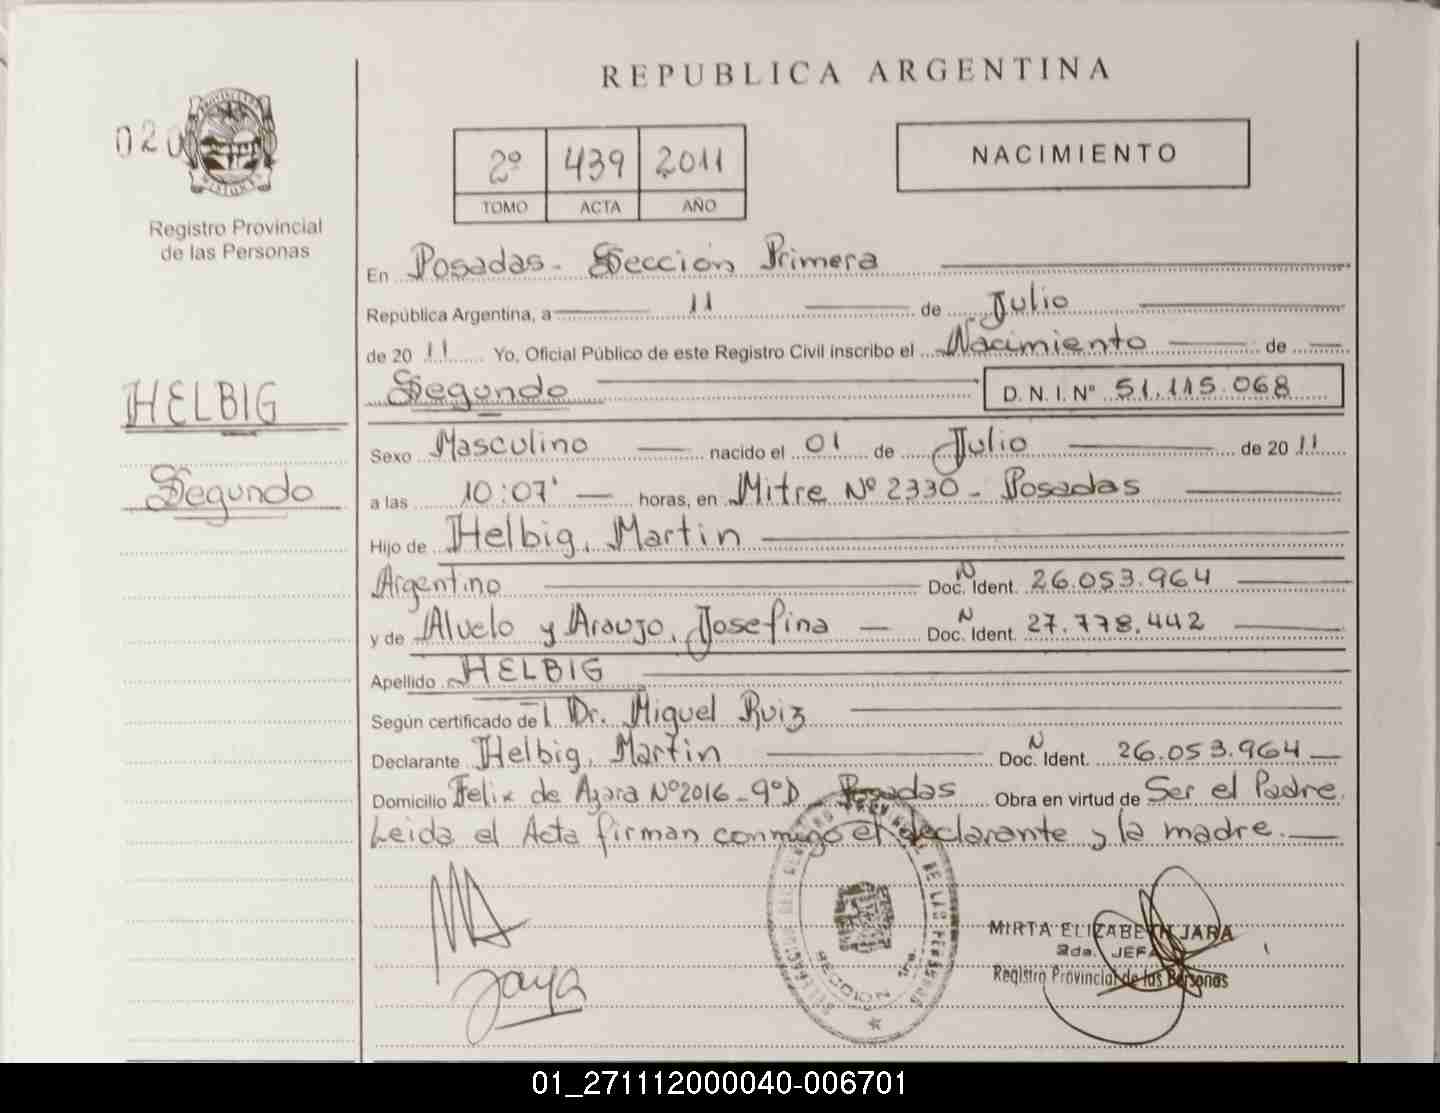 REPUBLICA ARGENTINA
020
Registro Provincial
de las Personas
2º 439 2011
TOMO ACTA AÑO
NACIMIENTO
En Posadas - Sección Primera
República Argentina, a 11 de Julio
de 20 11 Yo, Oficial Público de este Registro Civil inscribo el Nacimiento de
Segundo D.N.I. Nº 51.115.068
HELBIG
Segundo
Sexo Masculino nacido el 01 de Julio de 20 11
a las 10:07' horas, en Mitre Nº 2330 - Posadas
Hijo de Helbig, Martin
Argentino Doc. N Ident. 26.053.964
y de Alvelo y Araujo, Josefina Doc. N Ident. 27.778.442
Apellido HELBIG
Según certificado del Dr. Miguel Ruiz
Declarante Helbig, Martin Doc. N Ident. 26.053.964
Domicilio Felix de Azara Nº 2016 - 9º D Posadas Obra en virtud de Ser el Padre.
Leida el Acta firman conmigo el declarante y la madre.
MIRTA ELIZABETH JARA
2da. JEFA
Registro Provincial de las Personas
SECCION 1ra.
01_271112000040-006701